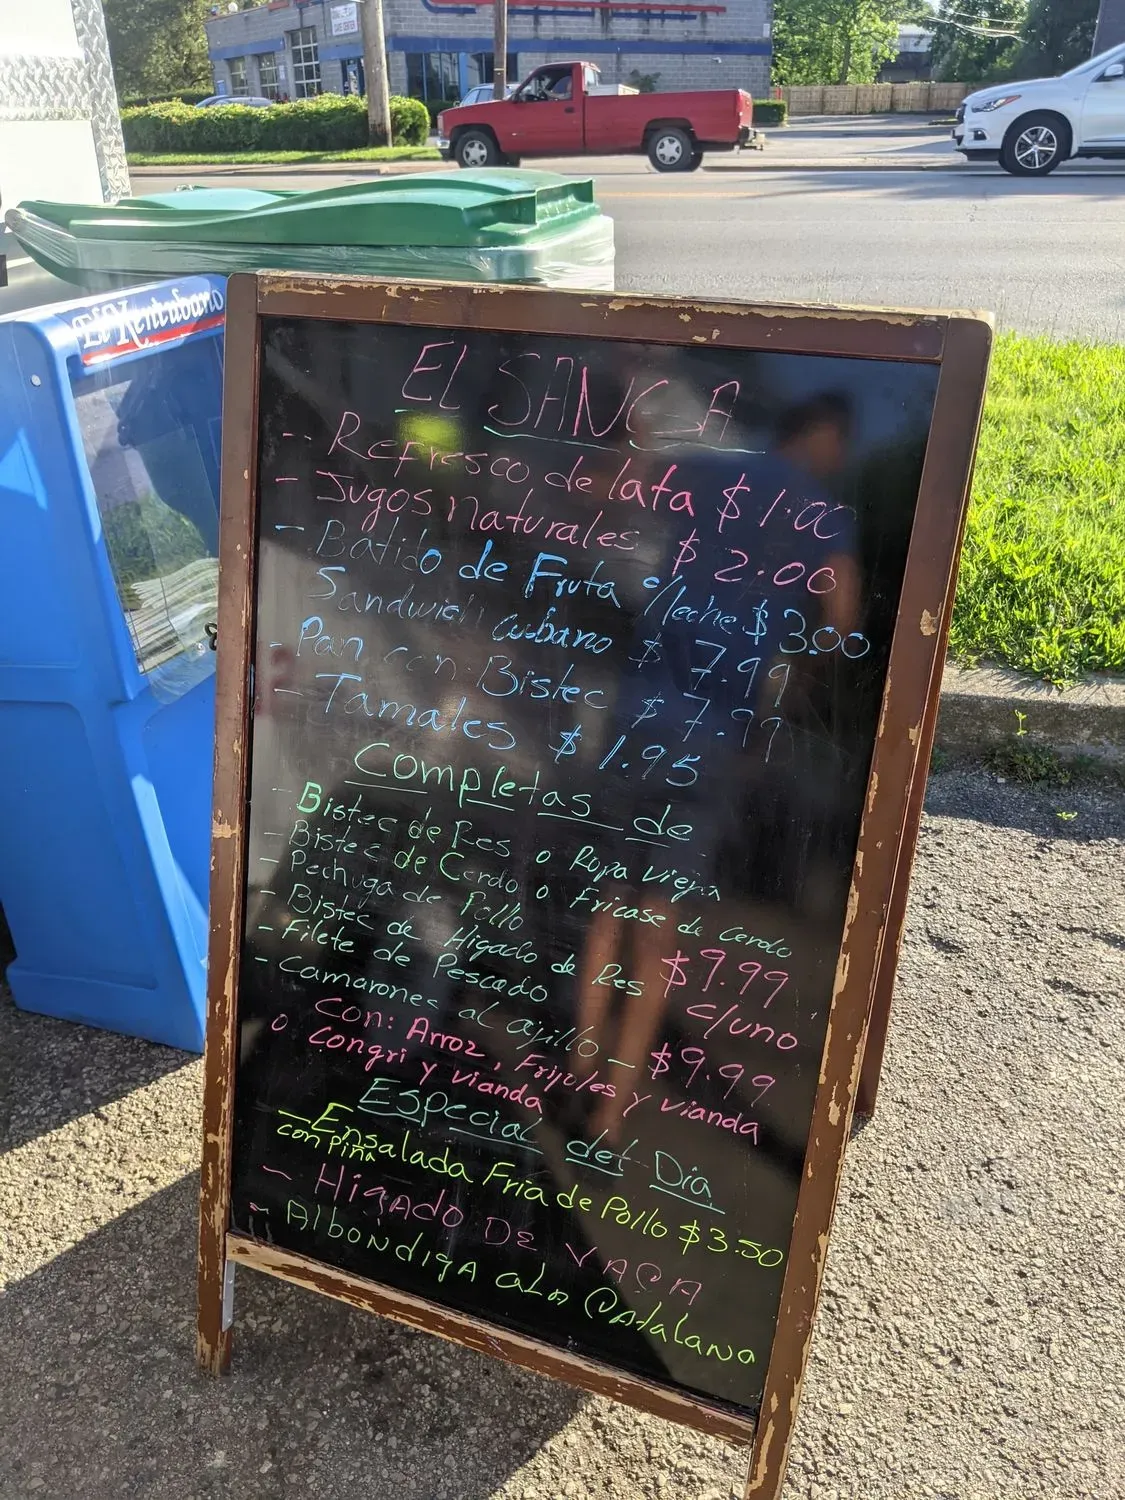 El Kentubano
EL SANGA
-- Refresco de lata $1.00
- Jugos naturales $2.00
- Batido de Fruta c/leche $3.00
Sandwich cubano $7.99
- Pan con Bistec $7.99
- Tamales $1.95
Completas de
- Bistec de Res o Ropa vieja
- Bistec de Cerdo o Fricase de Cerdo
- Pechuga de Pollo
- Bistec de Higado de Res $9.99
- Filete de Pescado c/uno
- Camarones al ajillo - $9.99
Con: Arroz, Frijoles y vianda
o congri y vianda
Especial del Dia
- Ensalada Fria de Pollo $3.50
con Piña
- HigADO DE VACA
- AlbONDigA aLA CatalaNa